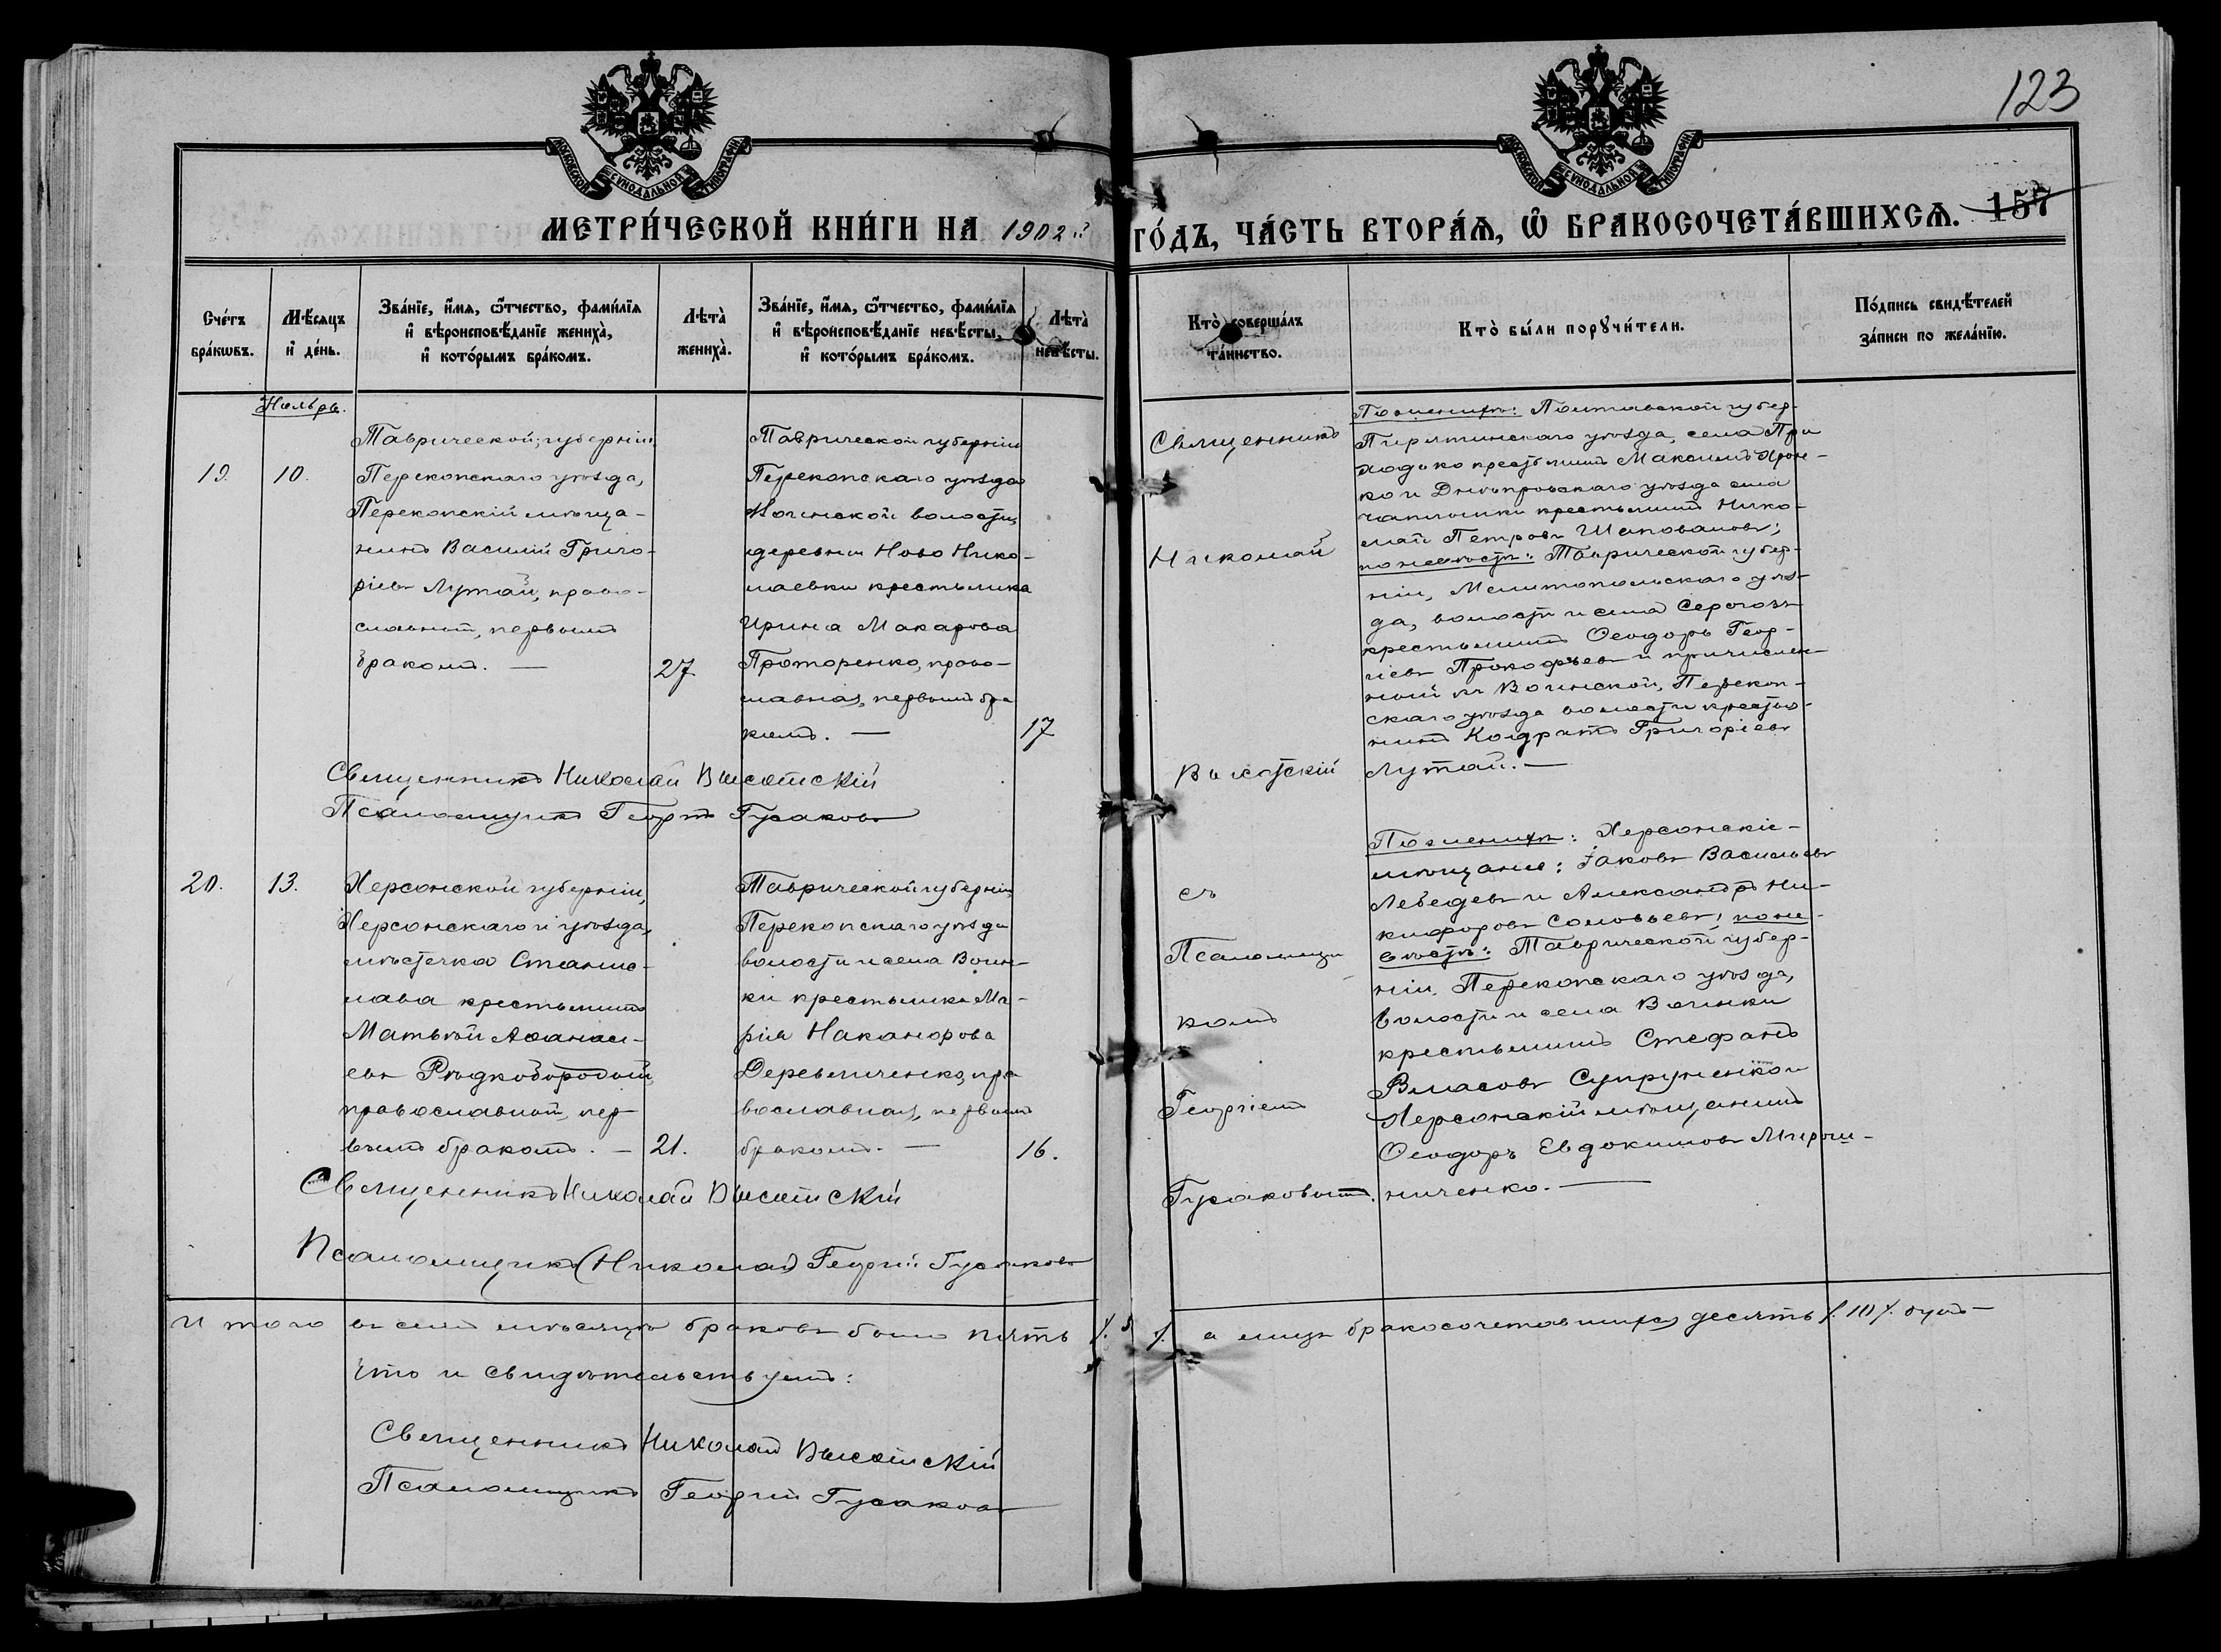 123
МОСКОВСКОЙ СѴНОДАЛЬНОЙ ТИПОГРАФІИ
МОСКОВСКОЙ СѴНОДАЛЬНОЙ ТИПОГРАФІИ
МЕТРИ́ЧЕСКОЙ КНИ́ГИ НА 1902й ГО́ДЪ, ЧА́СТЬ ВТОРА́Ѧ, Ѽ БРАКОСОЧЕТА́ВШИХСѦ. 157
Сче́тъ
бра́кѡвъ.
Мѣ́сѧцъ
и҆ де́нь.
Зва́нїе, и҆́мѧ, ѻ҆́тчество, фами́лїѧ
и҆ вѣроисповѣ́данїе жениха̀,
и҆ кото́рымъ бра́комъ.
Лѣта̀
жениха̀.
Зва́нїе, и҆́мѧ, ѻ҆́тчество, фами́лїѧ
и҆ вѣроисповѣ́данїе невѣ́сты,
и҆ кото́рымъ бра́комъ.
Лѣта̀
невѣ́сты.
Кто̀ соверша́лъ
та́инство.
Кто̀ бы́ли порꙋчи́тели.
По́дпись свидѣ́телей
за́писи по жела́нїю.
Ноябрь.
19.
10.
Таврической губерніи
Перекопскаго уѣзда,
Перекопскій мѣща-
нинъ Василій Григо-
ріевъ Лутай, право-
славный, первымъ
бракомъ. —
27
Таврической губерніи
Перекопскаго уѣзда
Воинской волости,
деревни Ново Нико-
лаевки крестьянка
Ирина Макарова
Проторенко, право-
славная, первымъ бра
комъ. —
17
Священникъ
Николай
Высотскій
По женихѣ: Полтавской губер-
Пирятинскаго уѣзда, села При
ходько крестьянинъ Максимъ
ко и Днѣпровскаго уѣзда села
Чаплинки крестьянинъ Нико-
лай Петровъ Шаповаловъ;
по невѣстѣ: Таврической губер-
ніи, Мелитопольскаго уѣз-
да, волости и села Серогозъ
крестьянинъ Ѳеодоръ Геор-
гіевъ Прокофьевъ и причислен-
ный къ Воинской, Перекоп-
скаго уѣзда волости крестья-
нинъ Кондратъ Григоріевъ
Лутай. —
Священникъ Николай Высотскій
Псаломщикъ Георгій Гусаковъ
20.
13.
Херсонской губерніи,
Херсонскаго уѣзда,
мѣстечка Станис-
лава крестьянинъ
Матвѣй Аѳанась-
евъ Рѣдкобородый,
православный, пер-
вымъ бракомъ. —
21.
Таврической губерніи,
Перекопскаго уѣзда
волости и села Воин-
ки крестьянка Ма-
рія Наканорова
Деревянченко, пра
вославная, первымъ
бракомъ. —
16.
съ
Псаломщи
комъ
Георгіемъ
Гусаковымъ.
По женихѣ: Херсонскіе
мѣщане: Іаковъ Васильевъ
Лебедевъ и Александръ Ни-
кифоровъ Соловьевъ; по не-
вѣстѣ: Таврической губер-
ніи, Перекопскаго уѣзда,
волости и села Воинки
крестьянинъ Стефанъ
Власовъ Супруненко и
Херсонскій мѣщанинъ
Ѳеодоръ Евдокимовъ Мирош-
ниченко. —
Священникъ Николай Высотскій
Псаломщикъ (Николай) Георгій Гусаковъ
Итого въ семъ мѣсяцѣ браковъ было пять /. 5 /. а лицъ бракосочетавшихся десять /. 10 /. душъ —
Что и свидѣтельствуемъ:
Священникъ Николай Высотскій
Псаломщикъ Георгій Гусаковъ